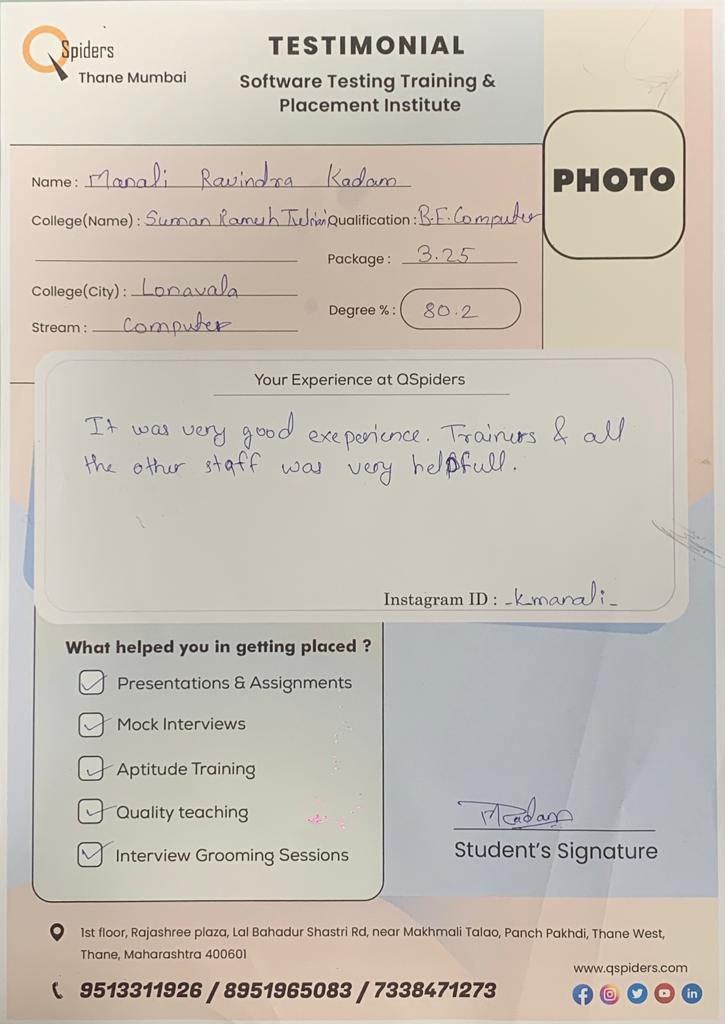 QSpiders
Thane Mumbai
TESTIMONIAL
Software Testing Training &
Placement Institute
PHOTO
Name : Manali Ravindra Kadam
College(Name) : Suman Ramesh Qualification : B.E. Computer
Package : 3.25
College(City) : Lonavala
Degree % : 80.2
Stream : Computer
Your Experience at QSpiders
It was very good exeperience. Trainers & all
the other staff was very helpfull.
Instagram ID : _kmanali_
What helped you in getting placed ?
Presentations & Assignments
Mock Interviews
Aptitude Training
Quality teaching
Interview Grooming Sessions
MKadam
Student's Signature
1st floor, Rajashree plaza, Lal Bahadur Shastri Rd, near Makhmali Talao, Panch Pakhdi, Thane West,
Thane, Maharashtra 400601
www.qspiders.com
9513311926 / 8951965083 / 7338471273